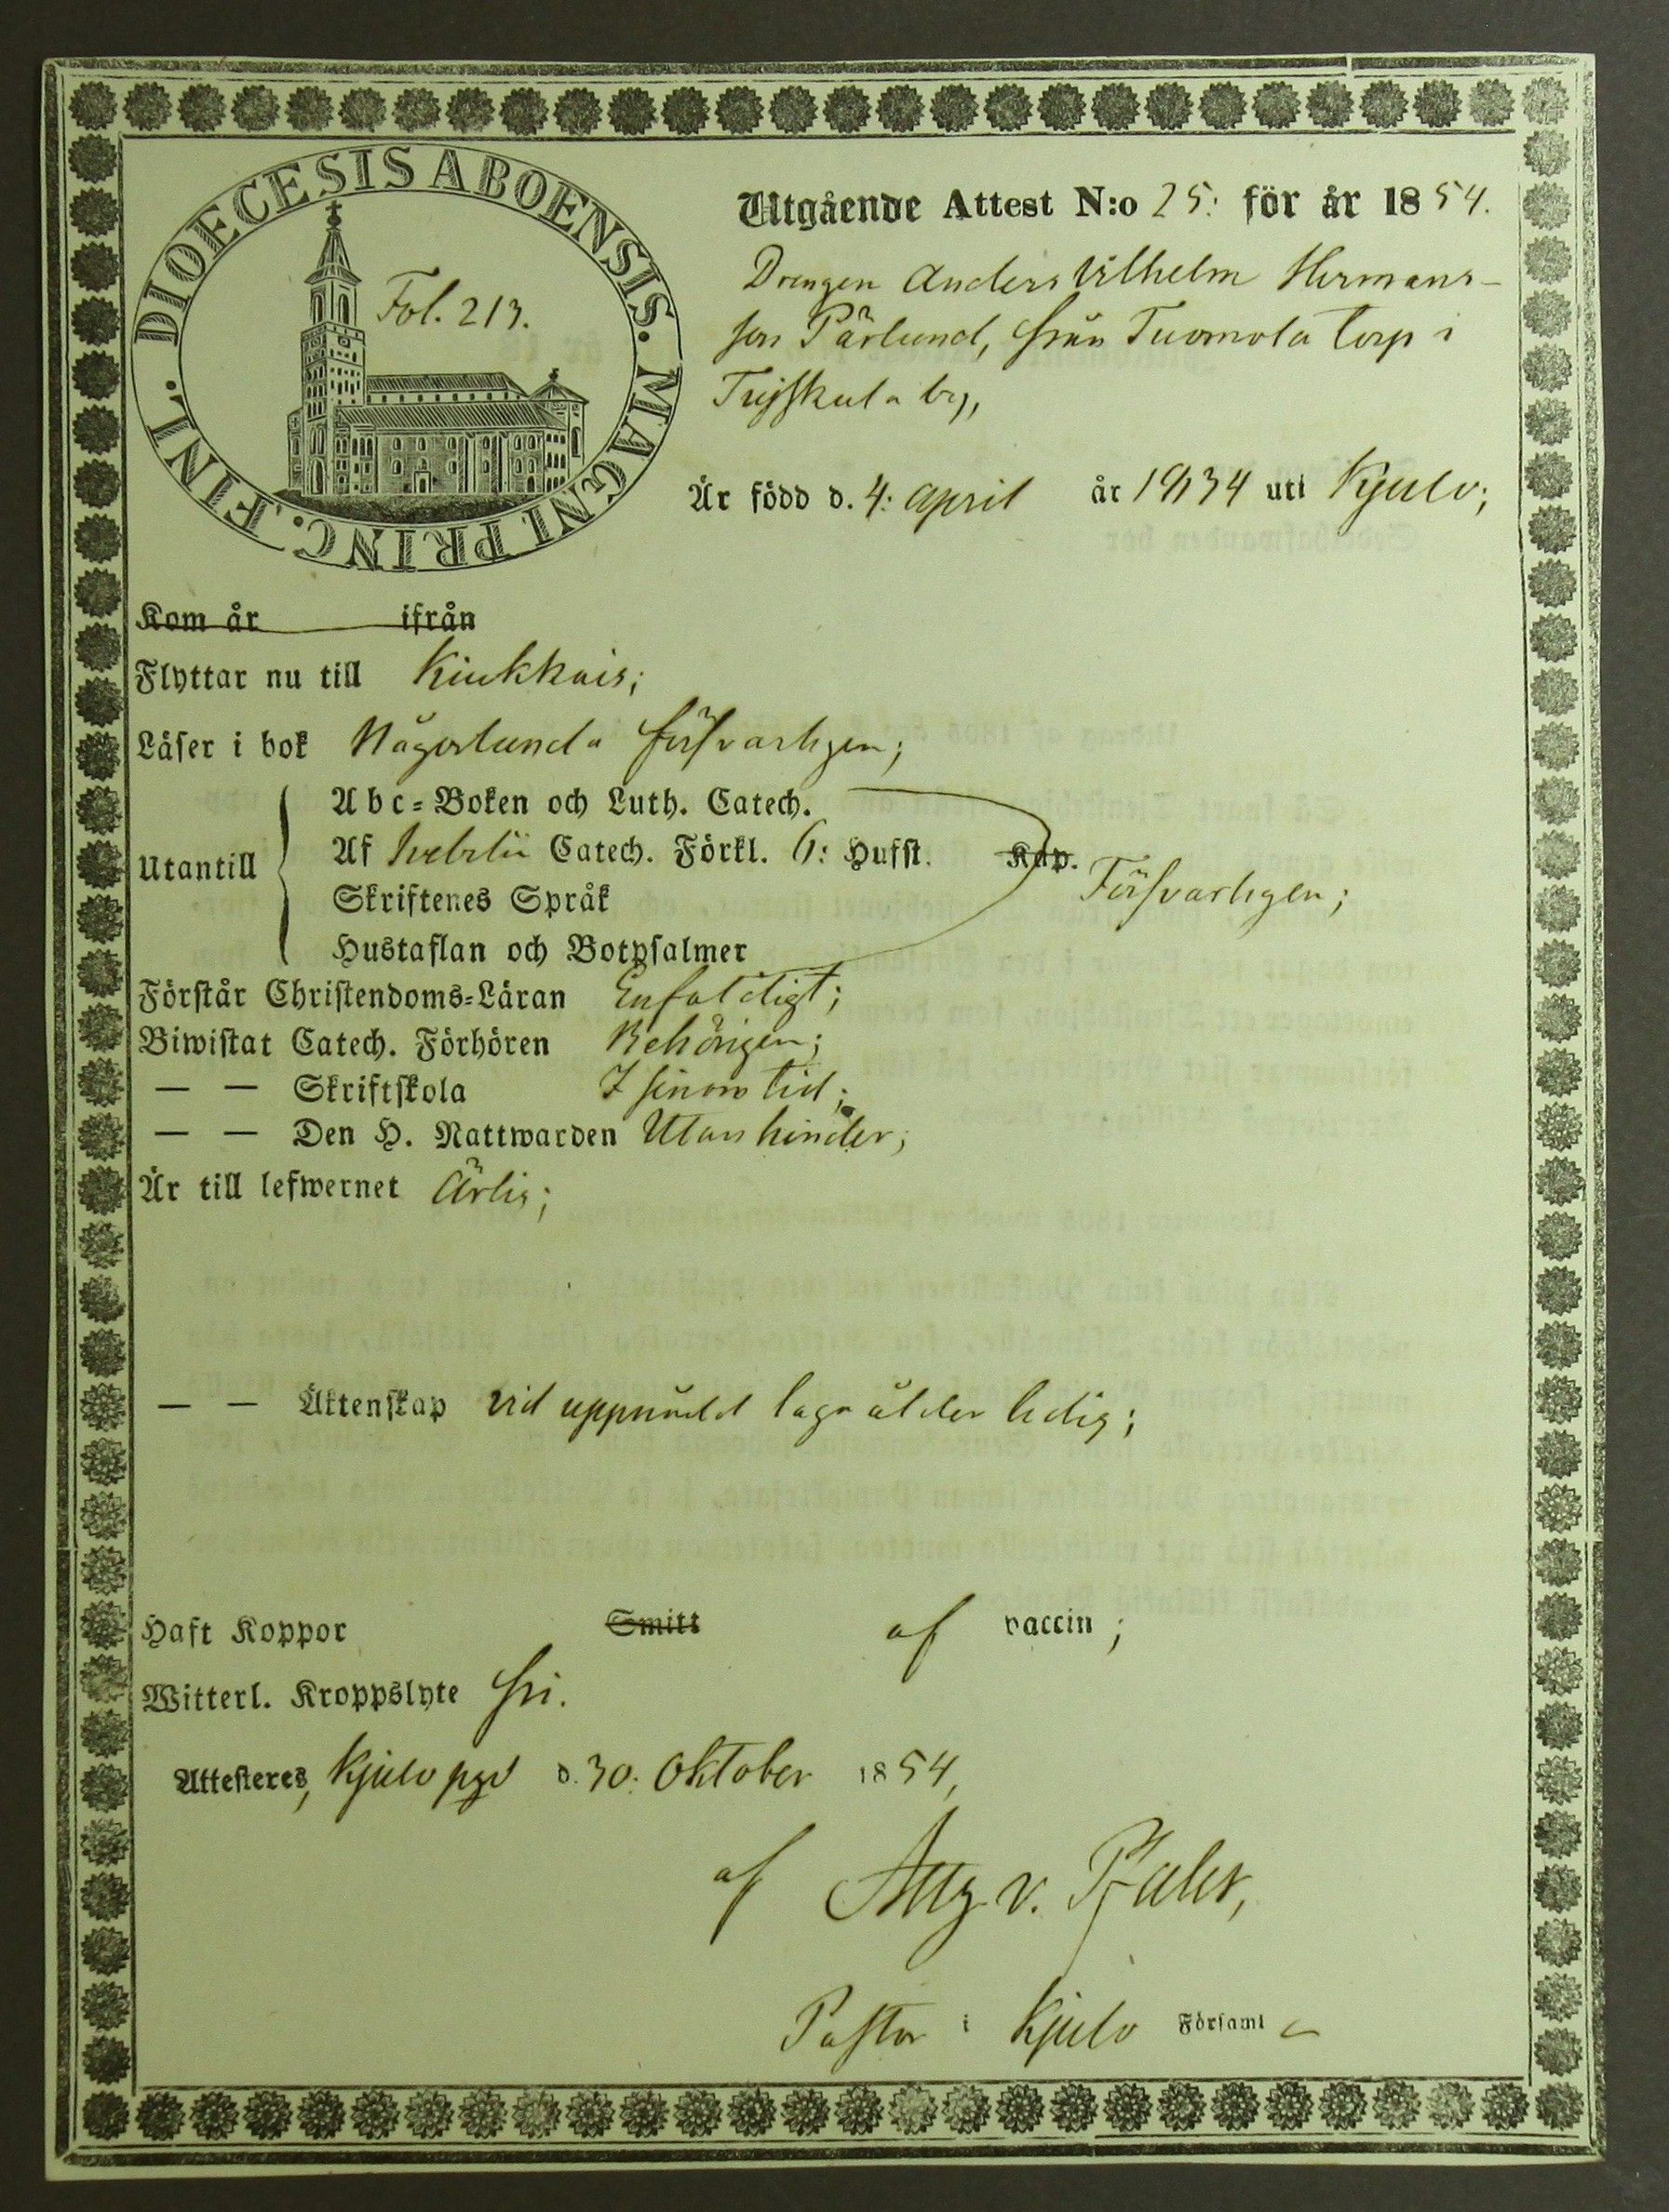 DIOECESIS ABOENSIS. MAGNI PRINC. FINL.
Fol. 213.
Utgående Attest N:o 25: för år 1854.
Drengen Anders Vilhelm Hermans-
son Pärlund, från Tuomola torp i
by,
Är född d. 4: april år 1834 uti Kjulo;
Kom år ifrån
Flyttar nu till Kiukkais;
Läser i bok Någorlunda försvarligen;
Utantill
Abc-Boken och Luth. Catech.
Af Catech. Förkl. 6: Hufst. Kap.
Försvarligen;
Skriftenes Språk
Hustaflan och Botpsalmer
Förstår Christendoms-Läran Enfaldigt;
Biwistat Catech. Förhören Behörigen;
— — Skriftskola I sinom tid;
— — Den H. Nattwarden Utan hinder;
Är till lefwernet Ärlig;
— — Äktenskap vid uppnådd laga ålder ledig;
Haft Koppor Smitt af vaccin;
Witterl. Kroppslyte fri.
Attesteres, Kjulo pgd d. 30: Oktober 1854,
af Aug. v. Pfaler,
Pastor i Kjulo Församl